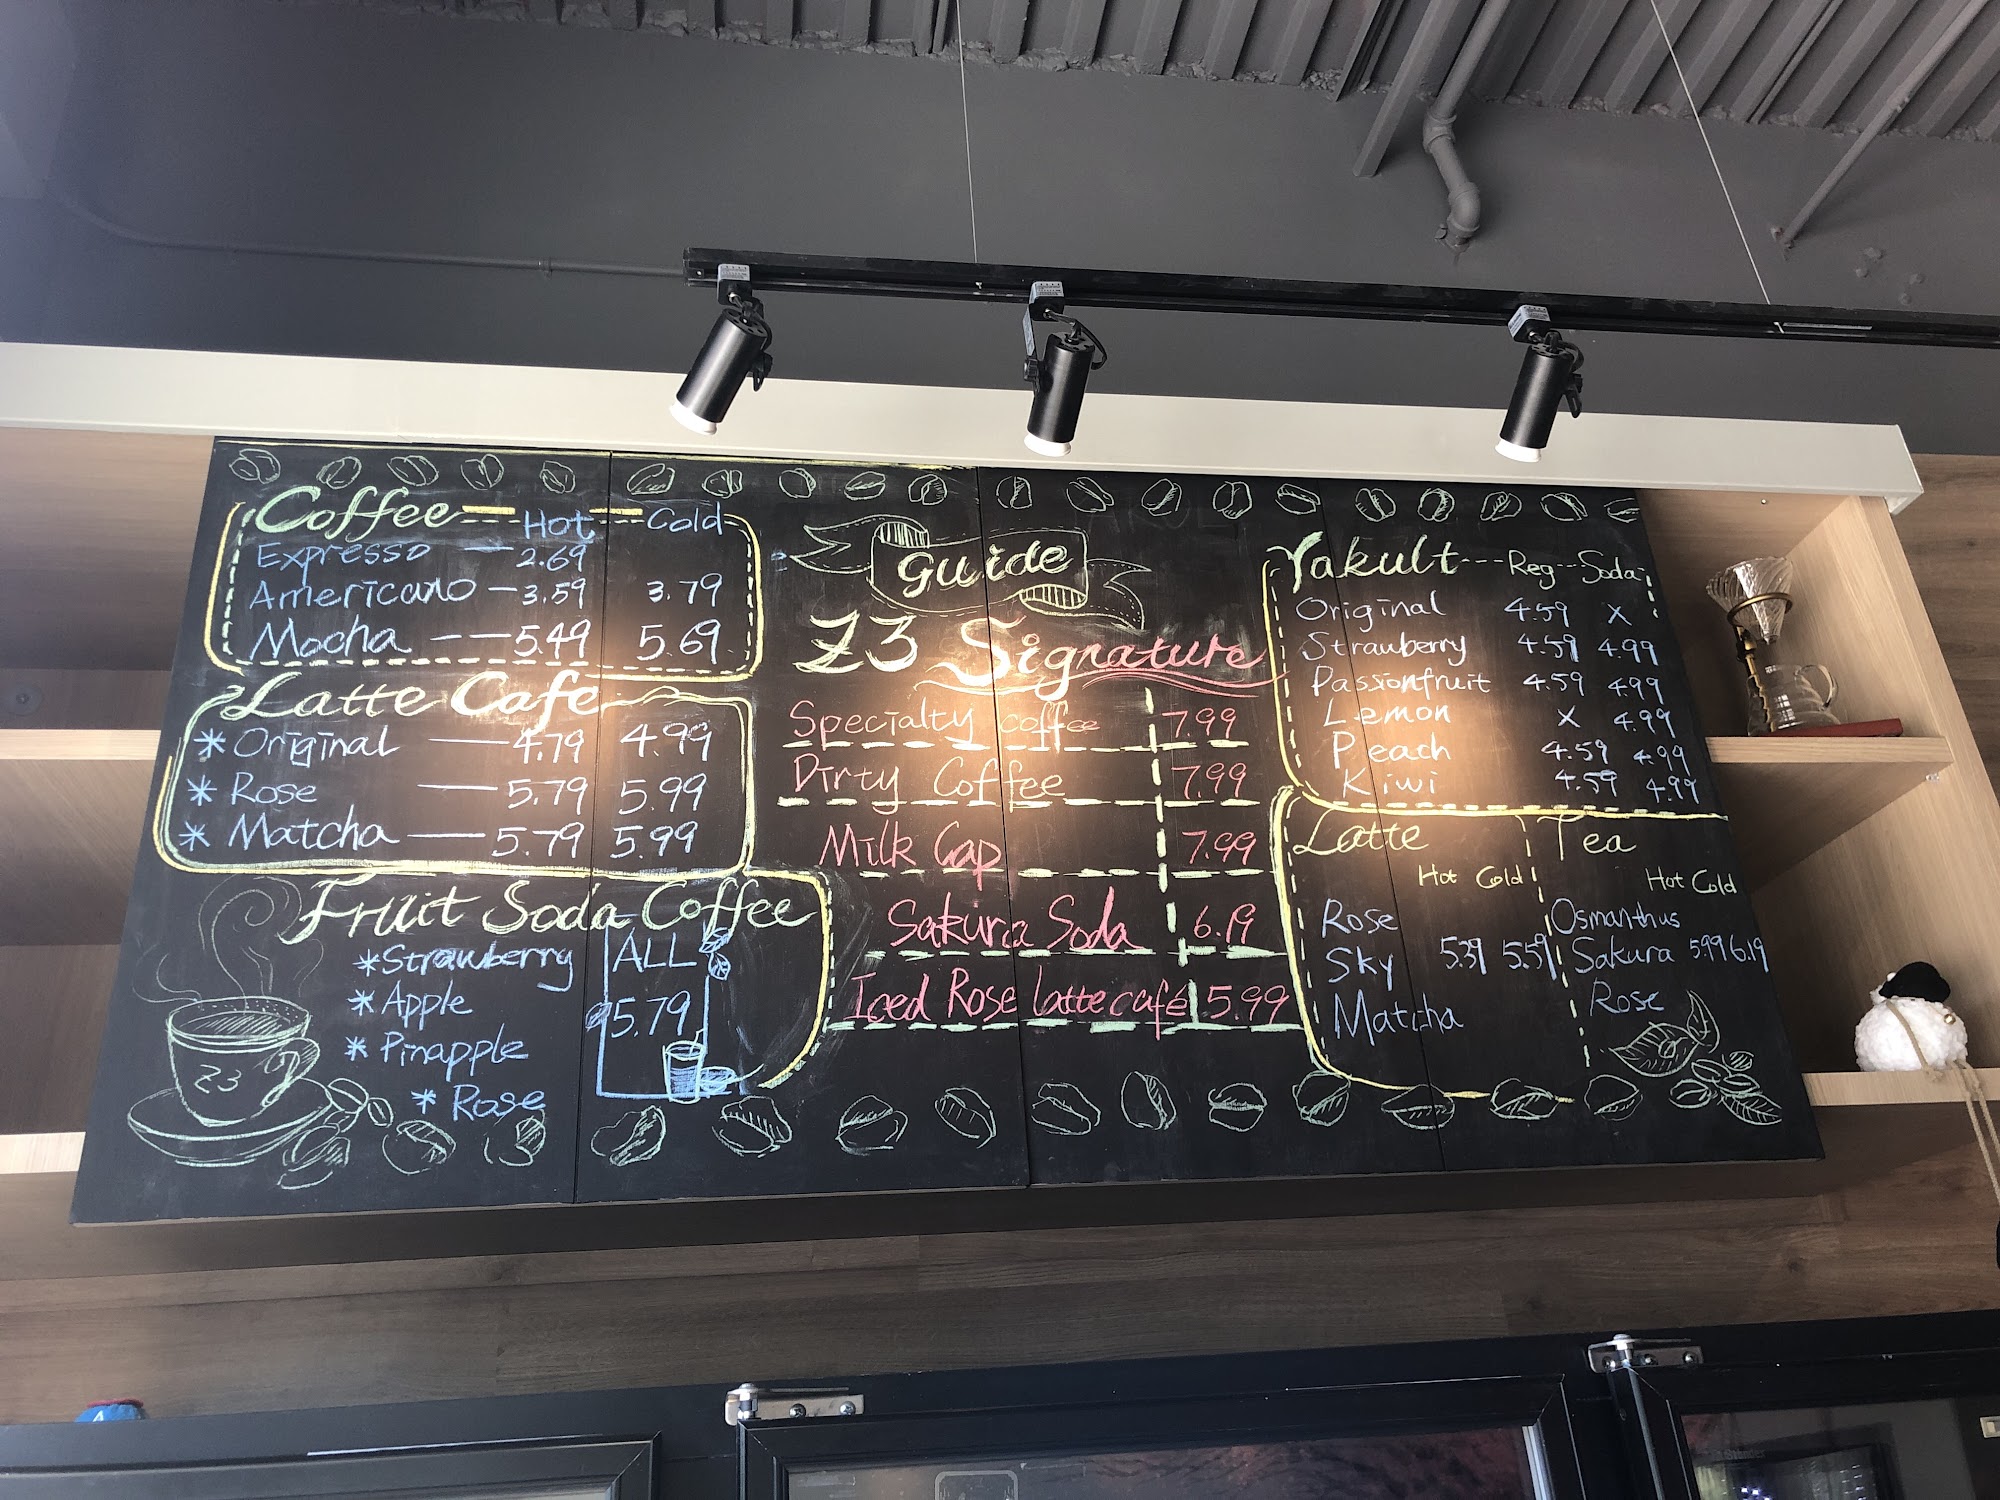 Coffee Hot Cold
Expresso 2.69
Americano 3.59 3.79
Mocha 5.49 5.69
Latte Cafe
* Original 4.79 4.99
* Rose 5.79 5.99
* Matcha 5.79 5.99
Fruit Soda Coffee
*Strawberry
* Apple
* Pinapple
* Rose
ALL
5.79
Z3
Guide
Z3 Signature
Specialty coffee 7.99
Dirty Coffee 7.99
Milk Cap 7.99
Sakura Soda 6.19
Iced Rose latte café 5.99
Yakult Reg Soda
Original 4.59 X
Strawberry 4.59 4.99
Passionfruit 4.59 4.99
Lemon X 4.99
Peach 4.59 4.99
Kiwi 4.59 4.99
Latte
Hot Cold
Rose
Sky 5.39 5.59
Matcha
Tea
Hot Cold
Osmanthus
Sakura 5.99 6.19
Rose